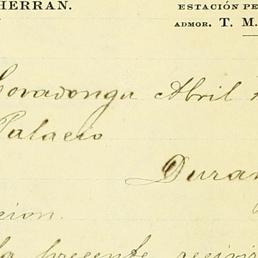 HERRAN. ESTACIÓN PE
ADMOR. T. M.
Covadonga Abril
Palacio
Duran
cion.
la presente recivir